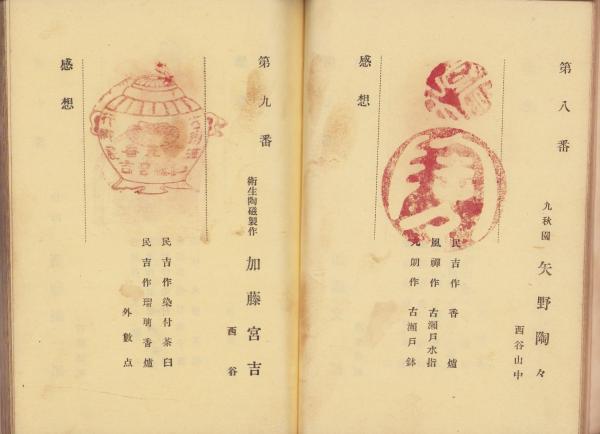 第八番
九秋園 矢野陶々
西谷山中
民吉作香爐
風禪作 古瀬戸水指
作 古瀬戸鉢
感想
第九番
衛生陶磁製作 加藤宮吉
西谷
民吉作染付茶臼
民吉作瑠璃香爐
外數点
感想